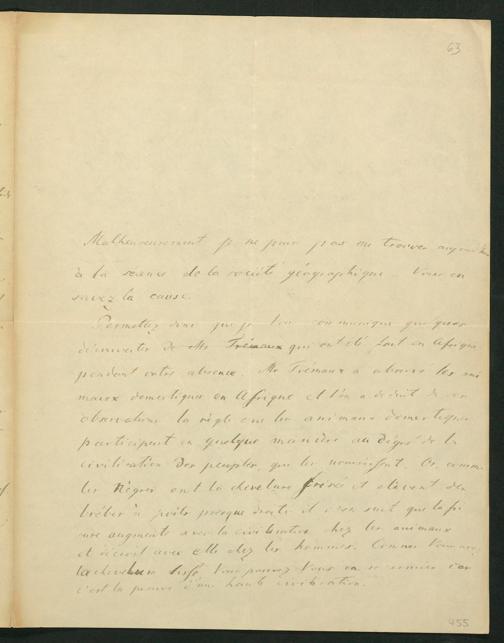 63
Malheureusement je ne puis pas me trouver aujourd'hui
à la séance de la société géographique. Vous en
savez la cause.
Permettez donc que je vous communique quelques
découvertes de Mr Trémaux qui ont été fait en Afrique
pendant votre absence. Mr Trémaux a observé les ani
maux domestiques en Afrique et l'on a déduit de ces
observations la règle que les animaux domestiques
participent en quelque manière au degré de la
civilisation des peuples, que les nourrissent. Or, comme
les Nègres ont la chevelure frisé et élèvent des
brébis à poils presque droits il s'en suit que la fri
sure augmente avec la civilisation chez les animaux
et décroit avec elle chez les hommes. Comme vous avez
la chevelure lisse vous pouvez vous en car
c'est la preuve d'une haute civilisation.
455